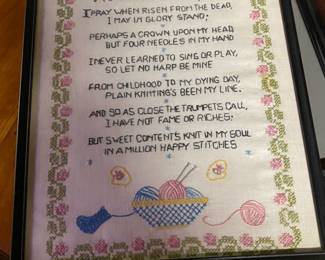 I PRAY WHEN RISEN FROM THE DEAD,
I MAY IN GLORY STAND;
PERHAPS A CROWN UPON MY HEAD
BUT FOUR NEEDLES IN MY HAND
I NEVER LEARNED TO SING OR PLAY,
SO LET NO HARP BE MINE
FROM CHILDHOOD TO MY DYING DAY,
PLAIN KNITTING'S BEEN MY LINE.
AND SO AS CLOSE THE TRUMPETS CALL,
I HAVE NOT FAME OR RICHES;
BUT SWEET CONTENTS KNIT IN MY SOUL
IN A MILLION HAPPY STITCHES